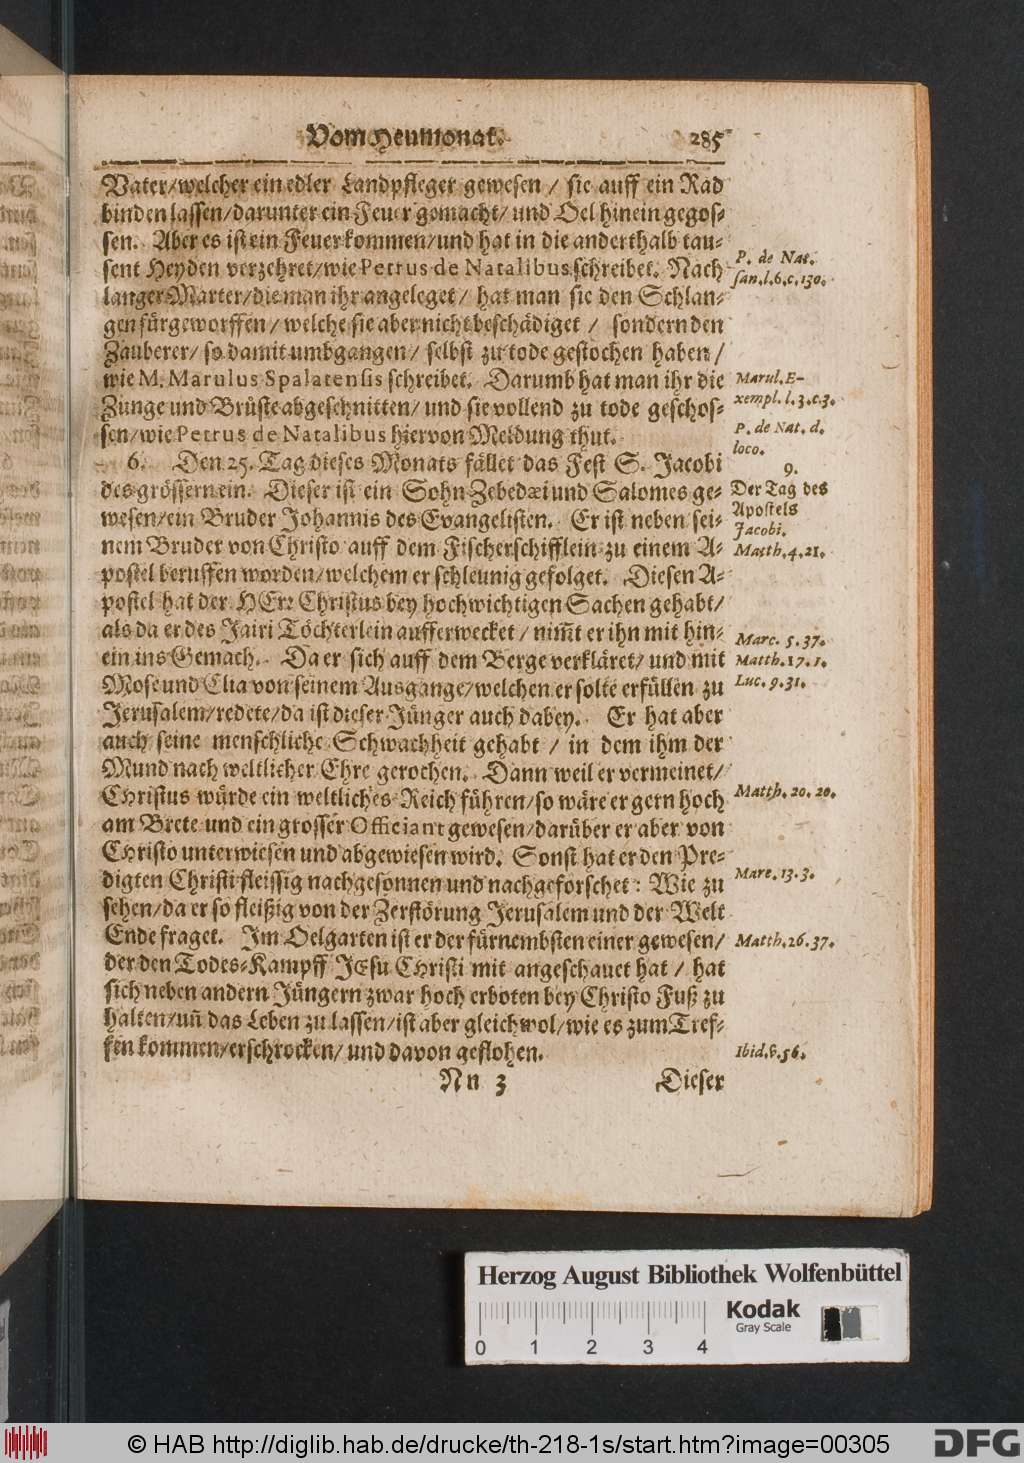 Vom Heumonat. 285
Vater/welcher ein edler Landpfleger gewesen / sie auff ein Rad
binden lassen/darunter ein Feuer gemacht/ und Oel hinein gegos-
sen. Aber es ist ein Feuer kommen/und hat in die anderthalb tau-
sent Heyden verzehret/wie Petrus de Natalibus schreibet. Nach
langer Marter/die man ihr angeleget / hat man sie den Schlan-
gen fürgeworffen/ welche sie aber nicht beschädiget / sondern den
Zauberer/ so damit umbgangen/ selbst zu tode gestochen haben/
wie M. Marulus Spalatensis schreibet. Darumb hat man ihr die
Zunge und Brüste abgeschnitten/ und sie vollend zu tode geschos-
sen/wie Petrus de Natalibus hiervon Meldung thut.
6. Den 25. Tag dieses Monats fället das Fest S. Jacobi
des grössern ein. Dieser ist ein Sohn Zebedæi und Salomes ge-
wesen/ein Bruder Johannis des Evangelisten. Er ist neben sei-
nem Bruder von Christo auff dem Fischerschifflein zu einem A-
postel beruffen worden/welchem er schleunig gefolget. Diesen A-
postel hat der HErr Christus bey hochwichtigen Sachen gehabt/
als da er des Jairi Töchterlein aufferwecket / nim̃t er ihn mit hin-
ein ins Gemach. Da er sich auff dem Berge verkläret/ und mit
Mose und Elia von seinem Ausgange/welchen er solte erfüllen zu
Jerusalem/redete/da ist dieser Jünger auch dabey. Er hat aber
auch seine menschliche Schwachheit gehabt / in dem ihm der
Mund nach weltlicher Ehre gerochen. Dann weil er vermeinet/
Christus würde ein weltliches Reich führen/so wäre er gern hoch
am Brete und ein grosser Officiant gewesen/darüber er aber von
Christo unterwiesen und abgewiesen wird. Sonst hat er den Pre-
digten Christi fleissig nachgesonnen und nachgeforschet: Wie zu
sehen/da er so fleißig von der Zerstörung Jerusalem und der Welt
Ende fraget. Im Oelgarten ist er der fürnembsten einer gewesen/
der den Todes-Kampff JEsu Christi mit angeschauet hat / hat
sich neben andern Jüngern zwar hoch erboten bey Christo Fuß zu
halten/uñ das Leben zu lassen/ist aber gleichwol/wie es zum Tref-
fen kommen/erschrocken/ und davon geflohen.
Nn 3 Dieser
P. de Nat.
san.l.6.c.130.
Marul.E-
xempl.l.3.c.3.
P. de Nat. d.
loco.
9.
Der Tag des
Apostels
Jacobi.
Matth.4.21.
Marc. 5.37.
Matth.17.1.
Luc. 9.31.
Matth.20.20.
Marc.13.3.
Matth.26.37.
Ibid.v.56.
Herzog August Bibliothek Wolfenbüttel
Kodak
Gray Scale
0 1 2 3 4
© HAB http://diglib.hab.de/drucke/th-218-1s/start.htm?image=00305
DFG